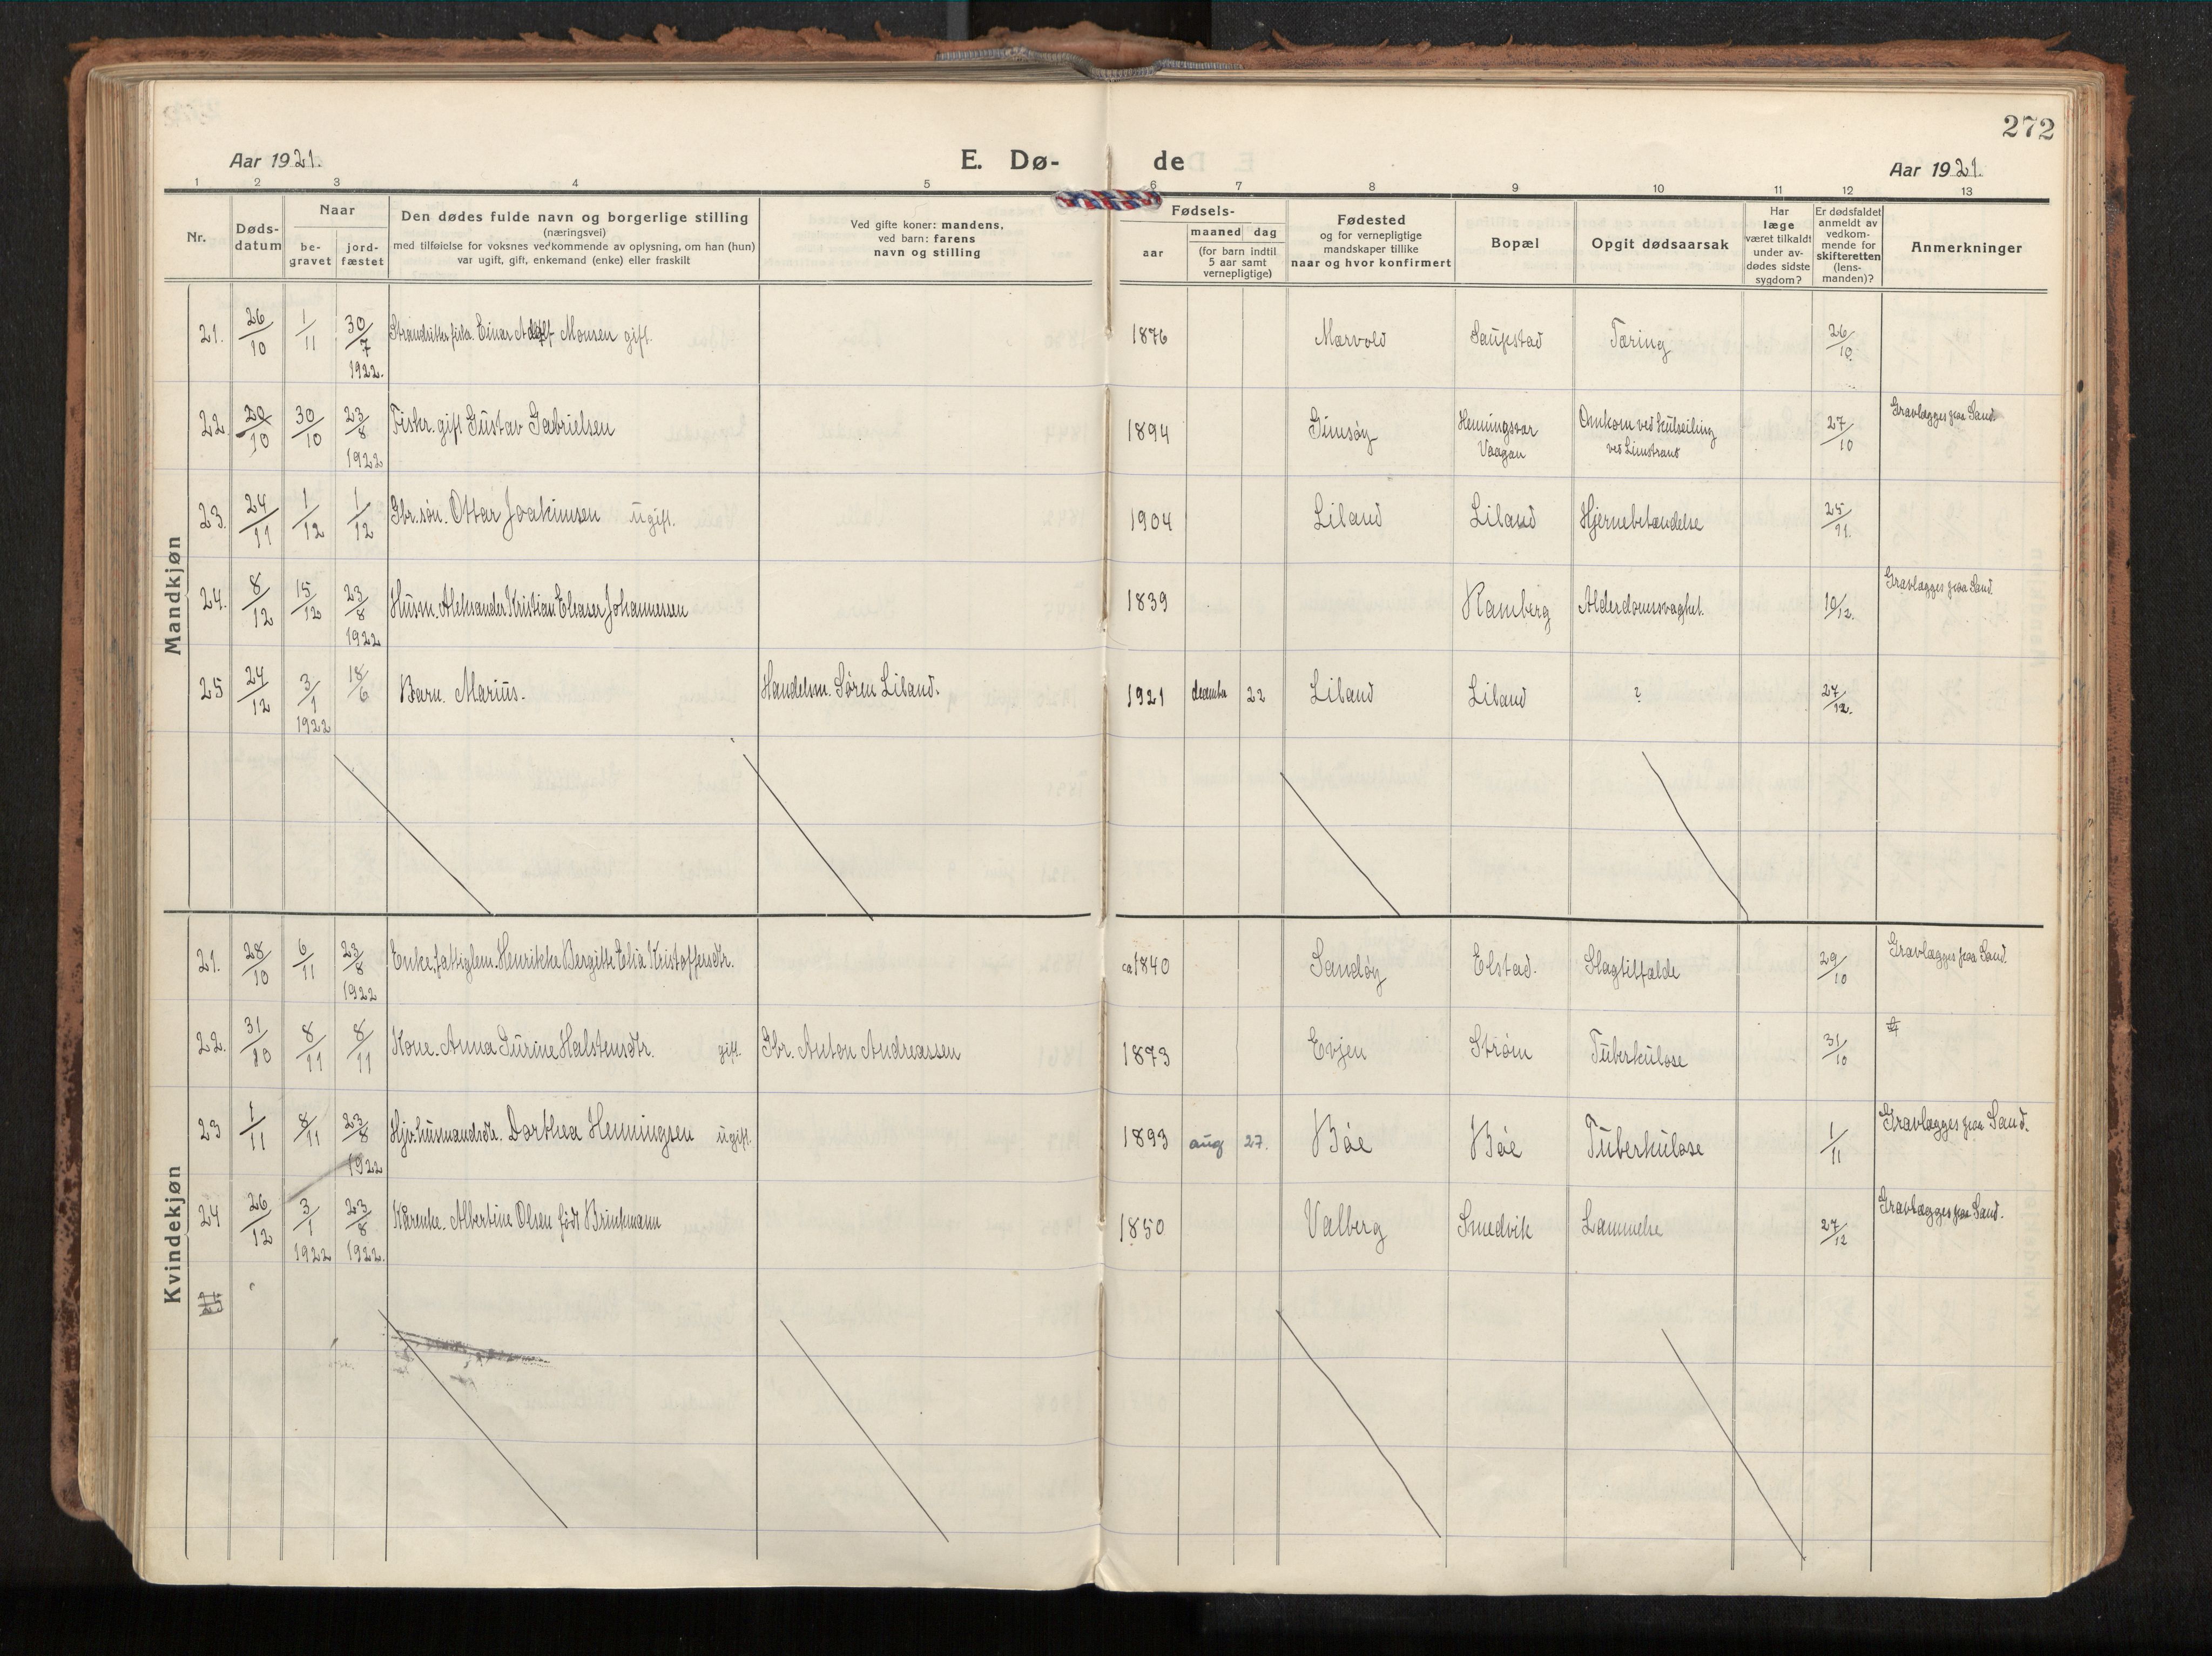 272
Aar 1921.
E. Dø-
de
Aar 1921.
1 2 3 4 5 6 7 8 9 10 11 12 13
Nr.
Døds-
datum
Naar
be-
gravet
jord-
fæstet
Den dødes fulde navn og borgerlige stilling
(næringsvei)
med tilføielse for voksnes vedkommende av oplysning, om han (hun)
var ugift, gift, enkemand (enke) eller fraskilt
Ved gifte koner: mandens,
ved barn: farens
navn og stilling
Fødsels-
aar
maaned dag
(for barn indtil
5 aar samt
vernepligtige)
Fødested
og for vernepligtige
mandskaper tillike
naar og hvor konfirmert
Bopæl
Opgit dødsaarsak
Har
læge
været tilkaldt
under av-
dødes sidste
sygdom?
Er dødsfaldet
anmeldt av
vedkom-
mende for
skifteretten
(lens-
manden)?
Anmerkninger
Mandkjøn
21. 26/10 1/11 30/7 1922. Einar Adolf Monsen gift. 1876 Marvold Saupstad Tæring 26/10.
22 20/10 30/10 23/8 1922 Fiskr. gift Gustav Gabrielsen 1894 Gimsøy Henningsvær Vaagan Omkom ved kulseiling ved Limstrand 27/10 Gravlægges paa Sand.
23. 24/11 1/12 1/12 Gbr. søn. Ottar Joakimsen ugift. 1904 Liland Liland Hjernebetændelse 25/11.
24. 8/12 15/12 23/8 1922 Husm. Aleksander Kristian Eleaser Johannessen 1839 Ramberg Alderdomssvaghet. 10/12. Gravlægges paa Sand.
25 24/12 3/1 1922 18/6 Barn. Marius. Handelsm. Søren Liland. 1921 december 22 Liland Liland ? 27/12.
Kvindekjøn
21. 28/10 6/11 23/8 1922 Enke, fattiglem. Henrikke Bergitte Elia Kristoffersdtr. ca 1840 Sandøy Elstad. Slagtilfælde 29/10 Gravlægges paa Sand.
22. 31/10 8/11 8/11 Kone. Anna Surine Halstensdtr. gift. Gbr. Anton Andreassen 1873 Evjen Strøm Tuberkulose 31/10
23 1/11 8/11 23/8 1922 Hjv. husmandsdtr. Dorthea Henningsen ugift. 1893 aug 27. Bøe Bøe Tuberkulose 1/11 Gravlægges paa Sand.
24 26/12 3/1 1922 23/8 1922. Kårenke. Albertine Olsen født Brinkmann 1850 Valberg Smedvik Lammelse 27/12 Gravlægges paa Sand.